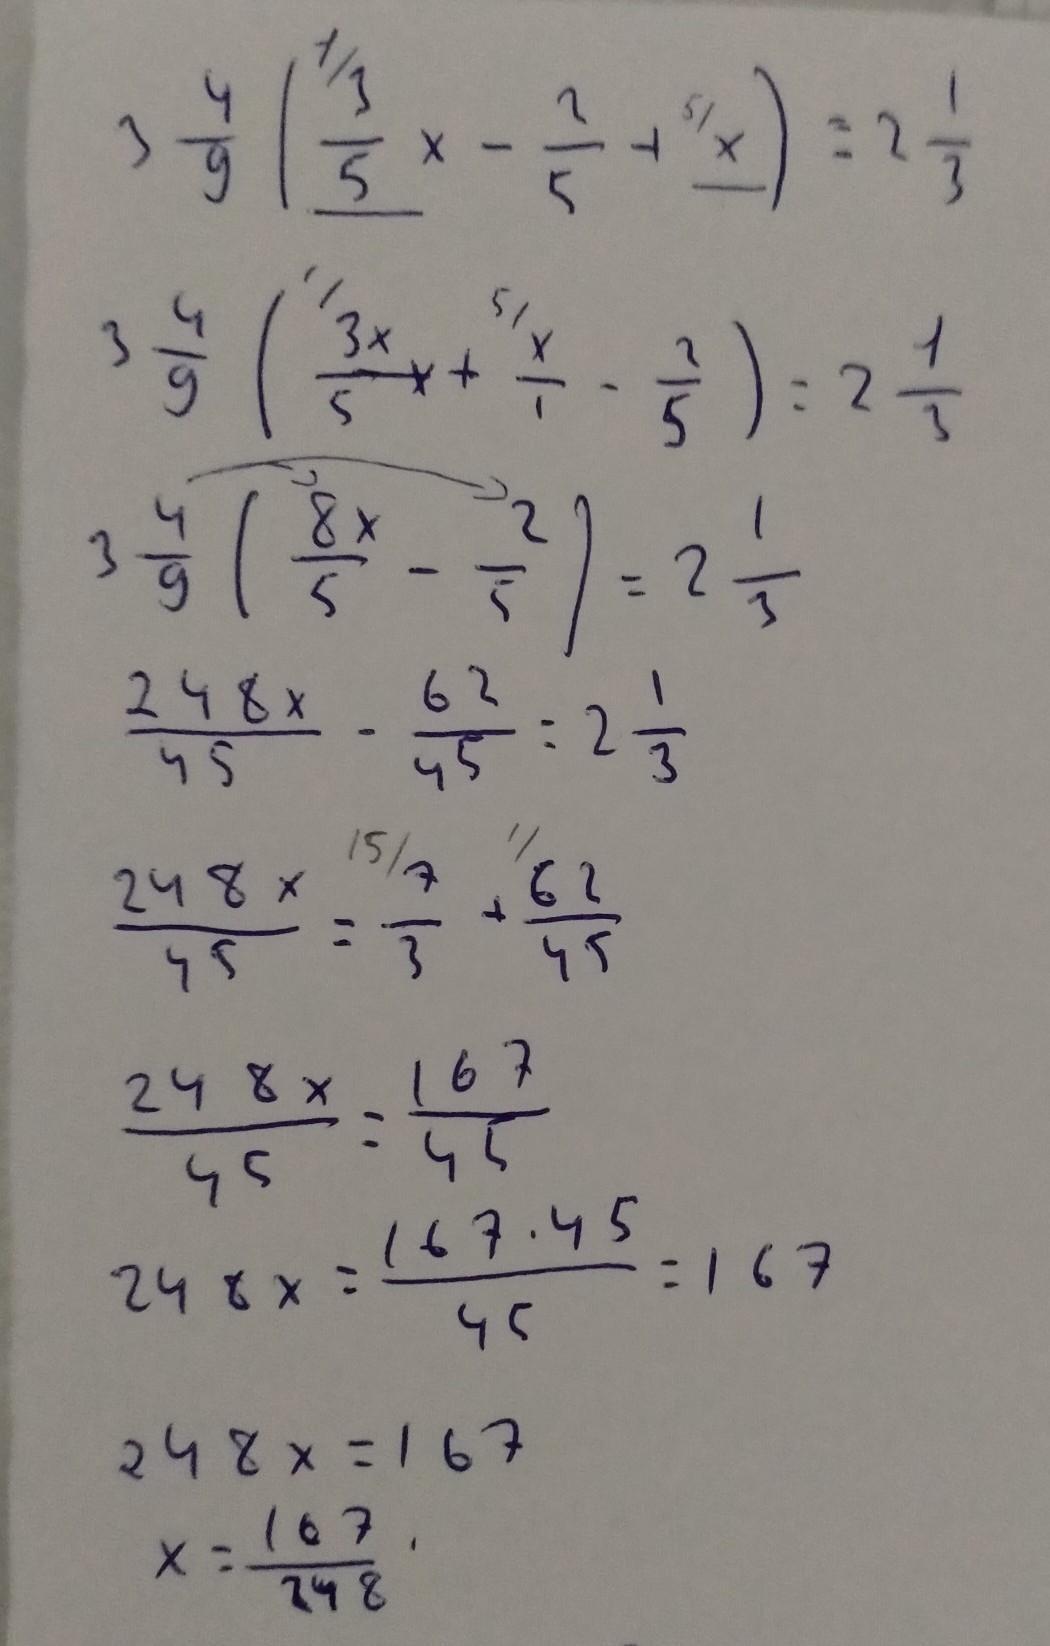 3 4/9 ( ¹/3/5 x - 2/5 + ⁵/x ) = 2 1/3
3 4/9 ( ¹/3x/5 x + ⁵/x/1 - 2/5 ) = 2 1/3
3 4/9 ( 8x/5 - 2/5 ) = 2 1/3
248x/45 - 62/45 = 2 1/3
248x/45 = ¹⁵/7/3 + ¹/62/45
248x/45 = 167/45
248x = 167·45/45 = 167
248x = 167
x = 167/248 .